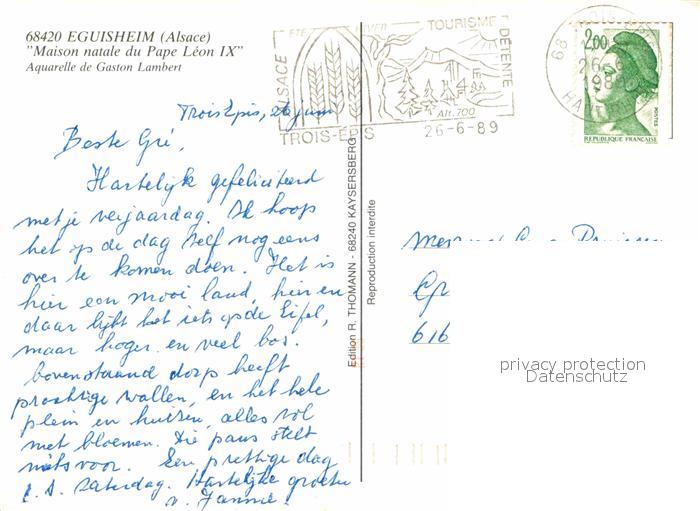 68420 EGUISHEIM (Alsace)
"Maison natale du Pape Léon IX"
Aquarelle de Gaston Lambert
ALSACE
ÉTÉ HIVER
TOURISME
DÉTENTE
Alt. 700
TROIS-ÉPIS
26-6-89
68
26-6
198
HAUT
2,00
REPUBLIQUE FRANÇAISE
Trois Epis, 26 juni
Beste Gré,
Hartelijk gefeliciteerd
met je verjaardag. Ik hoop
het op de dag zelf nog eens
over te komen doen. Het is
hier een mooi land, hier en
daar lijkt het iets op de Eifel,
maar hoger en veel bos.
bovenstaand dorp heeft
prachtige wallen, en het hele
plein en huizen, alles vol
met bloemen. Die paus stelt
niets voor. Een prettige dag
a.s. zaterdag. Hartelijke groeten
v. Jannie.
Edition R. THOMANN - 68240 KAYSERSBERG
Reproduction interdite
Gr
616
privacy protection
Datenschutz